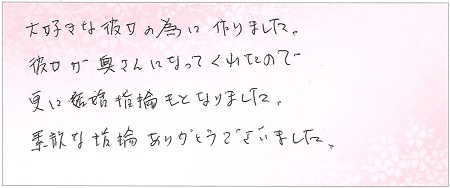 大好きな彼女の為に作りました。
彼女が奥さんになってくれたので
更に結婚指輪もとなりました。
素敵な指輪ありがとうございました。